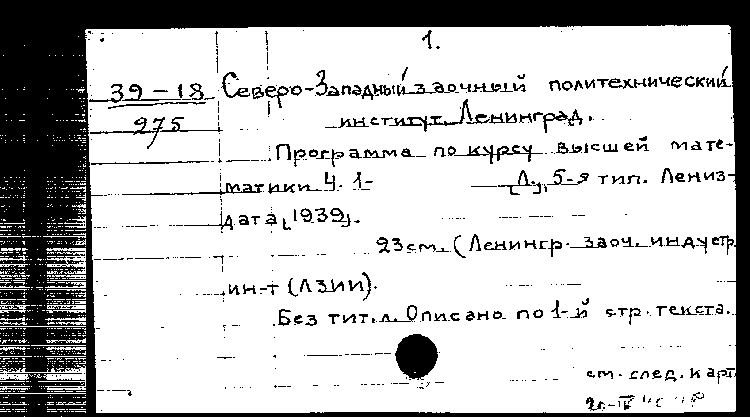 1.
39-18 Северо-Западный заочный политехнический
275 институт, Ленинград.
Программа по курсу высшей мате-
матики Ч. 1- [Л.], 5-я тип. Лениз-
дата, [1939].
23 см. (Ленингр. заоч. индустр.
ин-т (ЛЗИИ).
Без тит. л. Описано по 1-й стр. текста.
см. след. карт